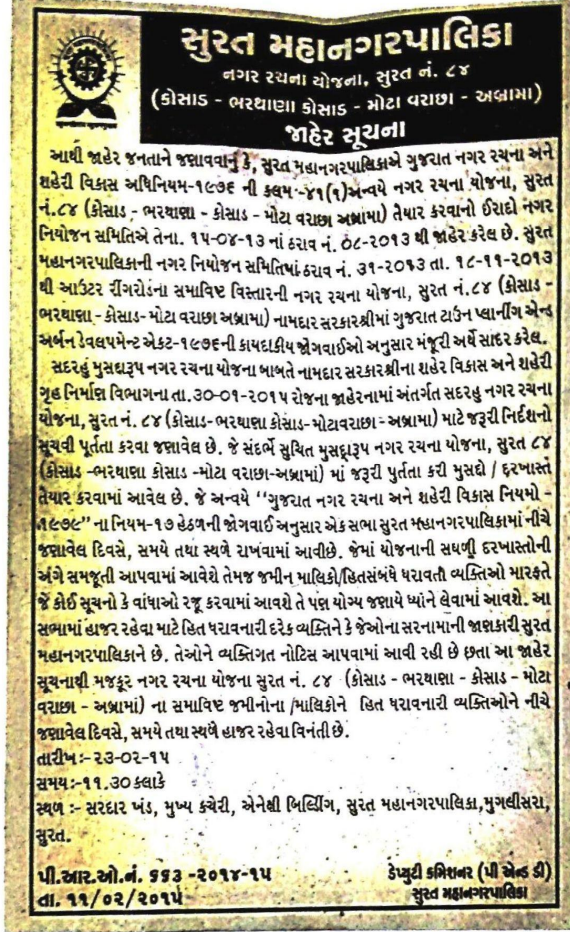 સુરત મહાનગરપાલિકા
નગર રચના યોજના, સુરત નં. ૮૪
(કોસાડ - ભરથાણા કોસાડ - મોટા વરાછા - અબ્રામા)
જાહેર સૂચના
આથી જાહેર જનતાને જણાવવાનું કે, સુરત મહાનગરપાલિકાએ ગુજરાત નગર રચના અને
શહેરી વિકાસ અધિનિયમ-૧૯૭૬ ની કલમ-૪૧(૧)અન્વયે નગર રચના યોજના, સુરત
નં.૮૪ (કોસાડ - ભરથાણા - કોસાડ - મોટા વરાછા અબ્રામા) તૈયાર કરવાનો ઈરાદો નગર
નિયોજન સમિતિએ તેના. ૧૫-૦૪-૧૩ નાં ઠરાવ નં. ૦૮-૨૦૧૩ થી જાહેર કરેલ છે. સુરત
મહાનગરપાલિકાની નગર નિયોજન સમિતિમાં ઠરાવ નં. ૩૧-૨૦૧૩ તા. ૧૮-૧૧-૨૦૧૩
થી આઉટર રીંગરોડના સમાવિષ્ટ વિસ્તારની નગર રચના યોજના, સુરત નં.૮૪ (કોસાડ -
ભરથાણા - કોસાડ-મોટા વરાછા અબ્રામા) નામદાર સરકારશ્રીમાં ગુજરાત ટાઉન પ્લાનીંગ એન્ડ
અર્બન ડેવલપમેન્ટ એકટ-૧૯૭૬ની કાયદાકીય જોગવાઈઓ અનુસાર મંજૂરી અર્થે સાદર કરેલ.
સદરહું મુસદ્દારૂપ નગર રચના યોજના બાબતે નામદાર સરકારશ્રીના શહેર વિકાસ અને શહેરી
ગૃહ નિર્માણ વિભાગના તા.૩૦-૦૧-૨૦૧૫ રોજના જાહેરનામાં અંતર્ગત સદરહુ નગર રચના
યોજના, સુરત નં. ૮૪ (કોસાડ-ભરથાણા કોસાડ-મોટાવરાછા - અબ્રામા) માટે જરૂરી નિર્દશનો
સૂચવી પૂર્તતા કરવા જણાવેલ છે. જે સંદર્ભે સુચિત મુસદ્દારૂપ નગર રચના યોજના, સુરત ૮૪
(કોસાડ -ભરથાણા કોસાડ -મોટા વરાછા-અબ્રામાં) માં જરૂરી પુર્તતા કરી મુસદ્દો / દરખાસ્ત
તૈયાર કરવામાં આવેલ છે. જે અન્વયે "ગુજરાત નગર રચના અને શહેરી વિકાસ નિયમો -
૧૯૭૯" ના નિયમ-૧૭ હેઠળની જોગવાઈ અનુસાર એક સભા સુરત મહાનગરપાલિકામાં નીચે
જણાવેલ દિવસે, સમયે તથા સ્થળે રાખવામાં આવીછે. જેમાં યોજનાની સઘળી દરખાસ્તોની
અંગે સમજૂતી આપવામાં આવશે તેમજ જમીન માલિકો/હિતસંબંધે ધરાવતી વ્યક્તિઓ મારફતે
જે કોઈ સૂચનો કે વાંધાઓ રજૂ કરવામાં આવશે તે પણ યોગ્ય જણાયે ધ્યાને લેવામાં આવશે. આ
સભામાં હાજર રહેવા માટે હિત ધરાવનારી દરેક વ્યક્તિને કે જેઓના સરનામાની જાણકારી સુરત
મહાનગરપાલિકાને છે. તેઓને વ્યક્તિગત નોટિસ આપવામાં આવી રહી છે છતા આ જાહેર
સૂચનાથી મજકૂર નગર રચના યોજના સુરત નં. ૮૪ (કોસાડ - ભરથાણા - કોસાડ - મોટા
વરાછા - અબ્રામાં) ના સમાવિષ્ટ જમીનોના /માલિકોને હિત ધરાવનારી વ્યક્તિઓને નીચે
જણાવેલ દિવસે, સમયે તથા સ્થળે હાજર રહેવા વિનંતી છે.
તારીખ:-૨૩-૦૨-૧૫
સમય:-૧૧.૩૦ કલાકે
સ્થળ :- સરદાર ખંડ, મુખ્ય કચેરી, એનેક્ષી બિલ્ડિંગ, સુરત મહાનગરપાલિકા,મુગલીસરા,
સુરત.
પી.આર.ઓ.નં. ૬૬૩ -૨૦૧૪-૧૫
ડેપ્યુટી કમિશનર (પી એન્ડ ડી)
તા. ૧૧/૦૨/૨૦૧૫
સુરત મહાનગરપાલિકા